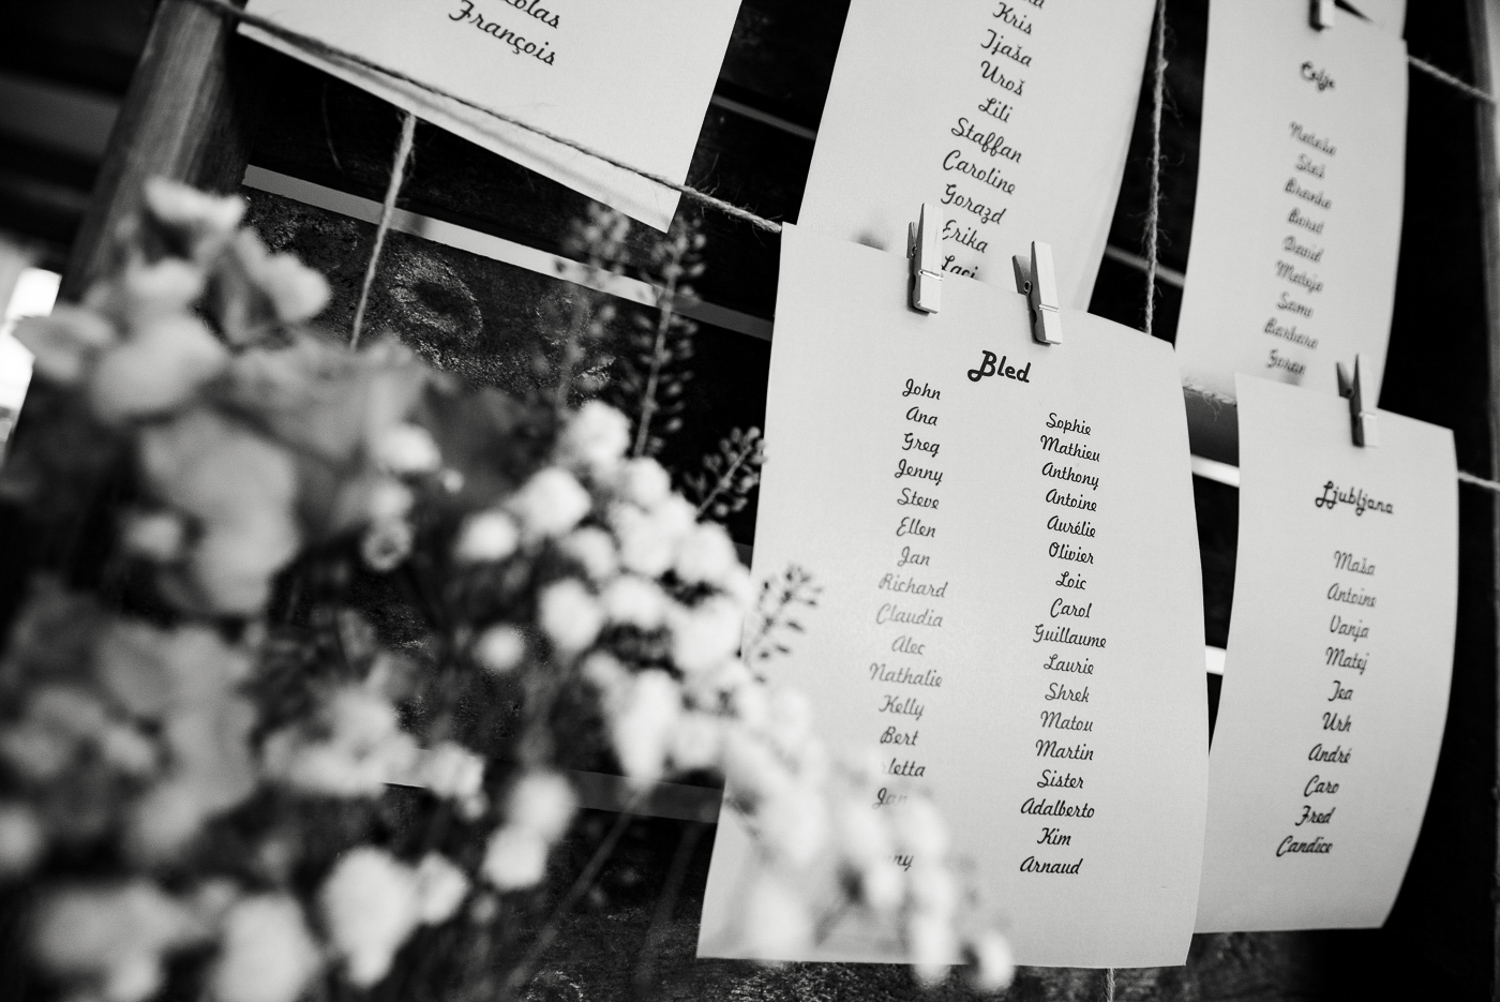 François
Kris
Tjaša
Uroš
Lili
Staffan
Caroline
Gorazd
Erika
Laci
Celje
Nataša
Staš
Branko
Borut
David
Mateja
Samo
Barbara
Goran
Bled
John
Ana
Greg
Jenny
Steve
Ellen
Jan
Richard
Claudia
Alec
Nathalie
Kelly
Bert
Sophie
Mathieu
Anthony
Antoine
Aurélie
Olivier
Loic
Carol
Guillaume
Laurie
Shrek
Matou
Martin
Sister
Adalberto
Kim
Arnaud
Ljubljana
Maša
Antoine
Vanja
Matej
Tea
Urh
André
Caro
Fred
Candice